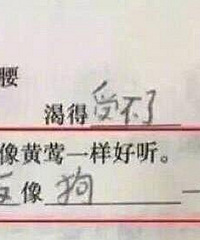 腰
渴得受不了
像黄莺一样好听。
像狗